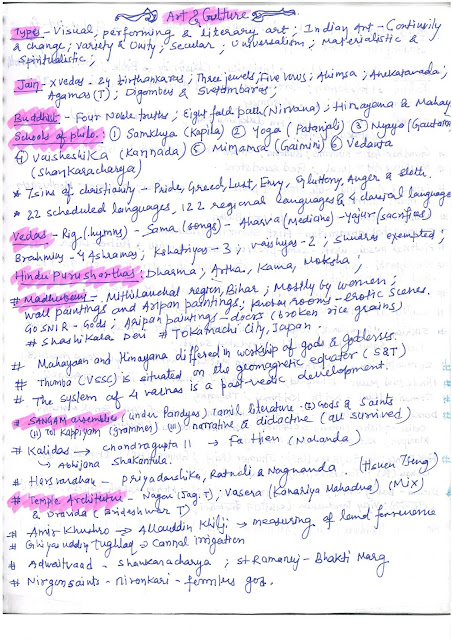 Art & Culture
Types - Visual, performing & literary art; Indian Art - Continuity
& change; Variety & Unity; Secular; Universalism; Materialistic &
Spiritualistic;
Jain - x vedas - 24 tirthankaras; Three jewels, Five vows; Ahimsa; Anekatavada;
Agamas (T); Digambers & Svetambaras;
Buddhist - Four Noble truths; Eight fold path (Nirvana); Hinayana & Mahay
Schools of philo: ① Samkhya (Kapila) ② Yoga (Patanjali) ③ Nyaya (Gautam
④ Vaisheshika (Kannada) ⑤ Mimamsa (Gaimini) ⑥ Vedanta
(Shankaracharya)
* 7 sins of christianity - Pride, Greed, Lust, Envy, Gluttony, Anger & sloth.
* 22 scheduled languages, 122 regional languages & 4 classical language
Vedas - Rig (hymns) - Sama (songs) - Atharva (Medicine) - Yajur (sacrifices)
Brahmins - 4 Ashramas; Kshatriyas - 3; Vaishyas - 2; Shudras exempted;
Hindu Purushorthas: Dharma; Artha, Kama, Moksha;
# Madhubani - Mithilanchal region, Bihar; Mostly by women;
wall paintings and Aripan paintings; rooms - erotic scenes.
GOSNIR - Gods; Aripan paintings - doors (broken rice grains)
# Shashikala Devi # Tokamachi City, Japan.
# Mahayan and Hinayana differed in worship of gods & goddesses.
# Thumba (VSSC) is situated on the geomagnetic equator (S&T)
# The system of 4 varnas is a post vedic development.
# SANGAM assemblies (under Pandyas) Tamil literature - Gods & Saints
(II) Tol Kappiyam (grammer) (III) narrative & didactive (all survived)
# Kalidas → chandragupta II → Fa Hien (Nalanda)
↳ Abhijana Shakontula.
# Harsvardhan - Priyadarshika, Ratnali & Nagnanda. (Hsuen Tseng)
# Temple Architecture - Nagar (Sag. T); Vasera (Kanariya Mahadua) (Mix)
& Dravida (Brideshwar T)
# Amir Khushro → Allauddin Khilji → measuring of land for revenue
# Ghiyauddin Tughlaq → Cannal irrigation
# Adwaitvaad - Shankaracharya; St Ramanuj - Bhakti Marg
# Nirgunsaints - nirankari - formless god.